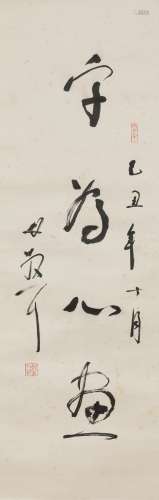 乙丑年十月
字為心畫